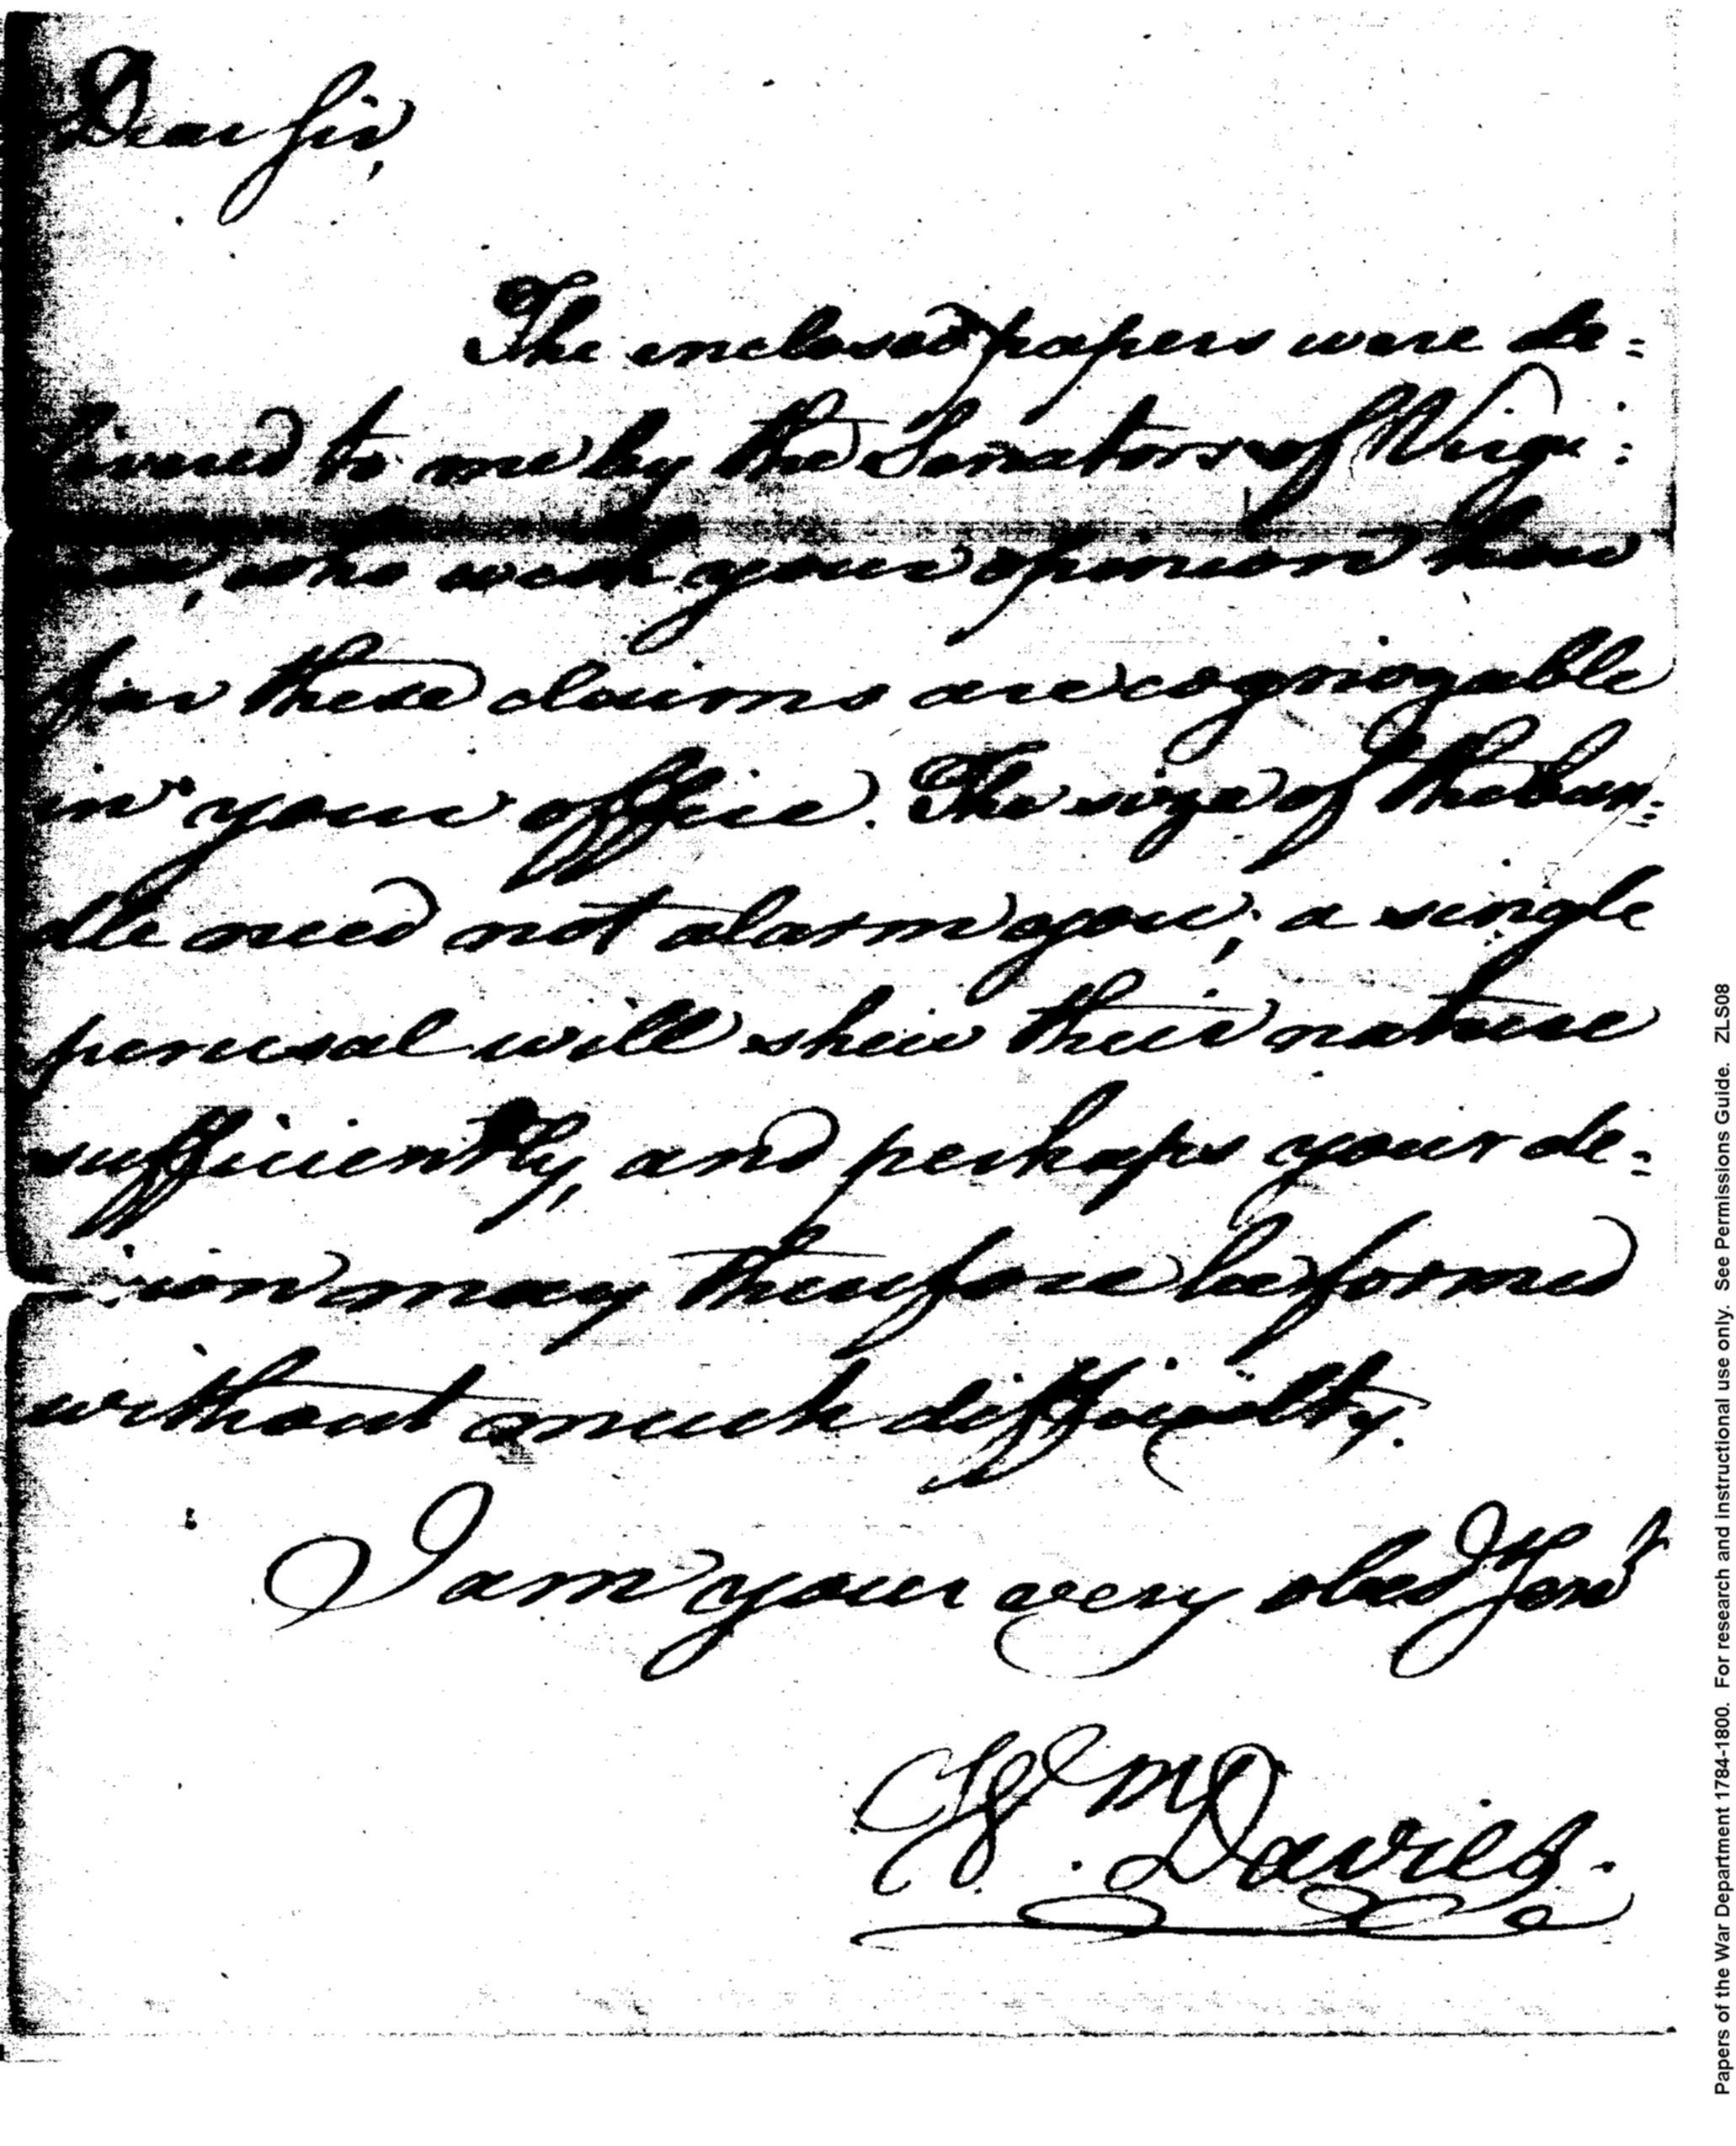 Dear Sir,
The enclosed papers were de=
livered to me by the Senators of Virgi:
, who wish your opinion how
far these claims are cognizable
in your office. The size of the bun=
dle need not alarm you; a single
perusal will shew their nature
sufficiently, and perhaps your de=
cision may therefore be formed
without much difficulty.
I am your very obed Serv
Wm Davies.
Papers of the War Department 1784-1800. For research and instructional use only. See Permissions Guide. ZLS08